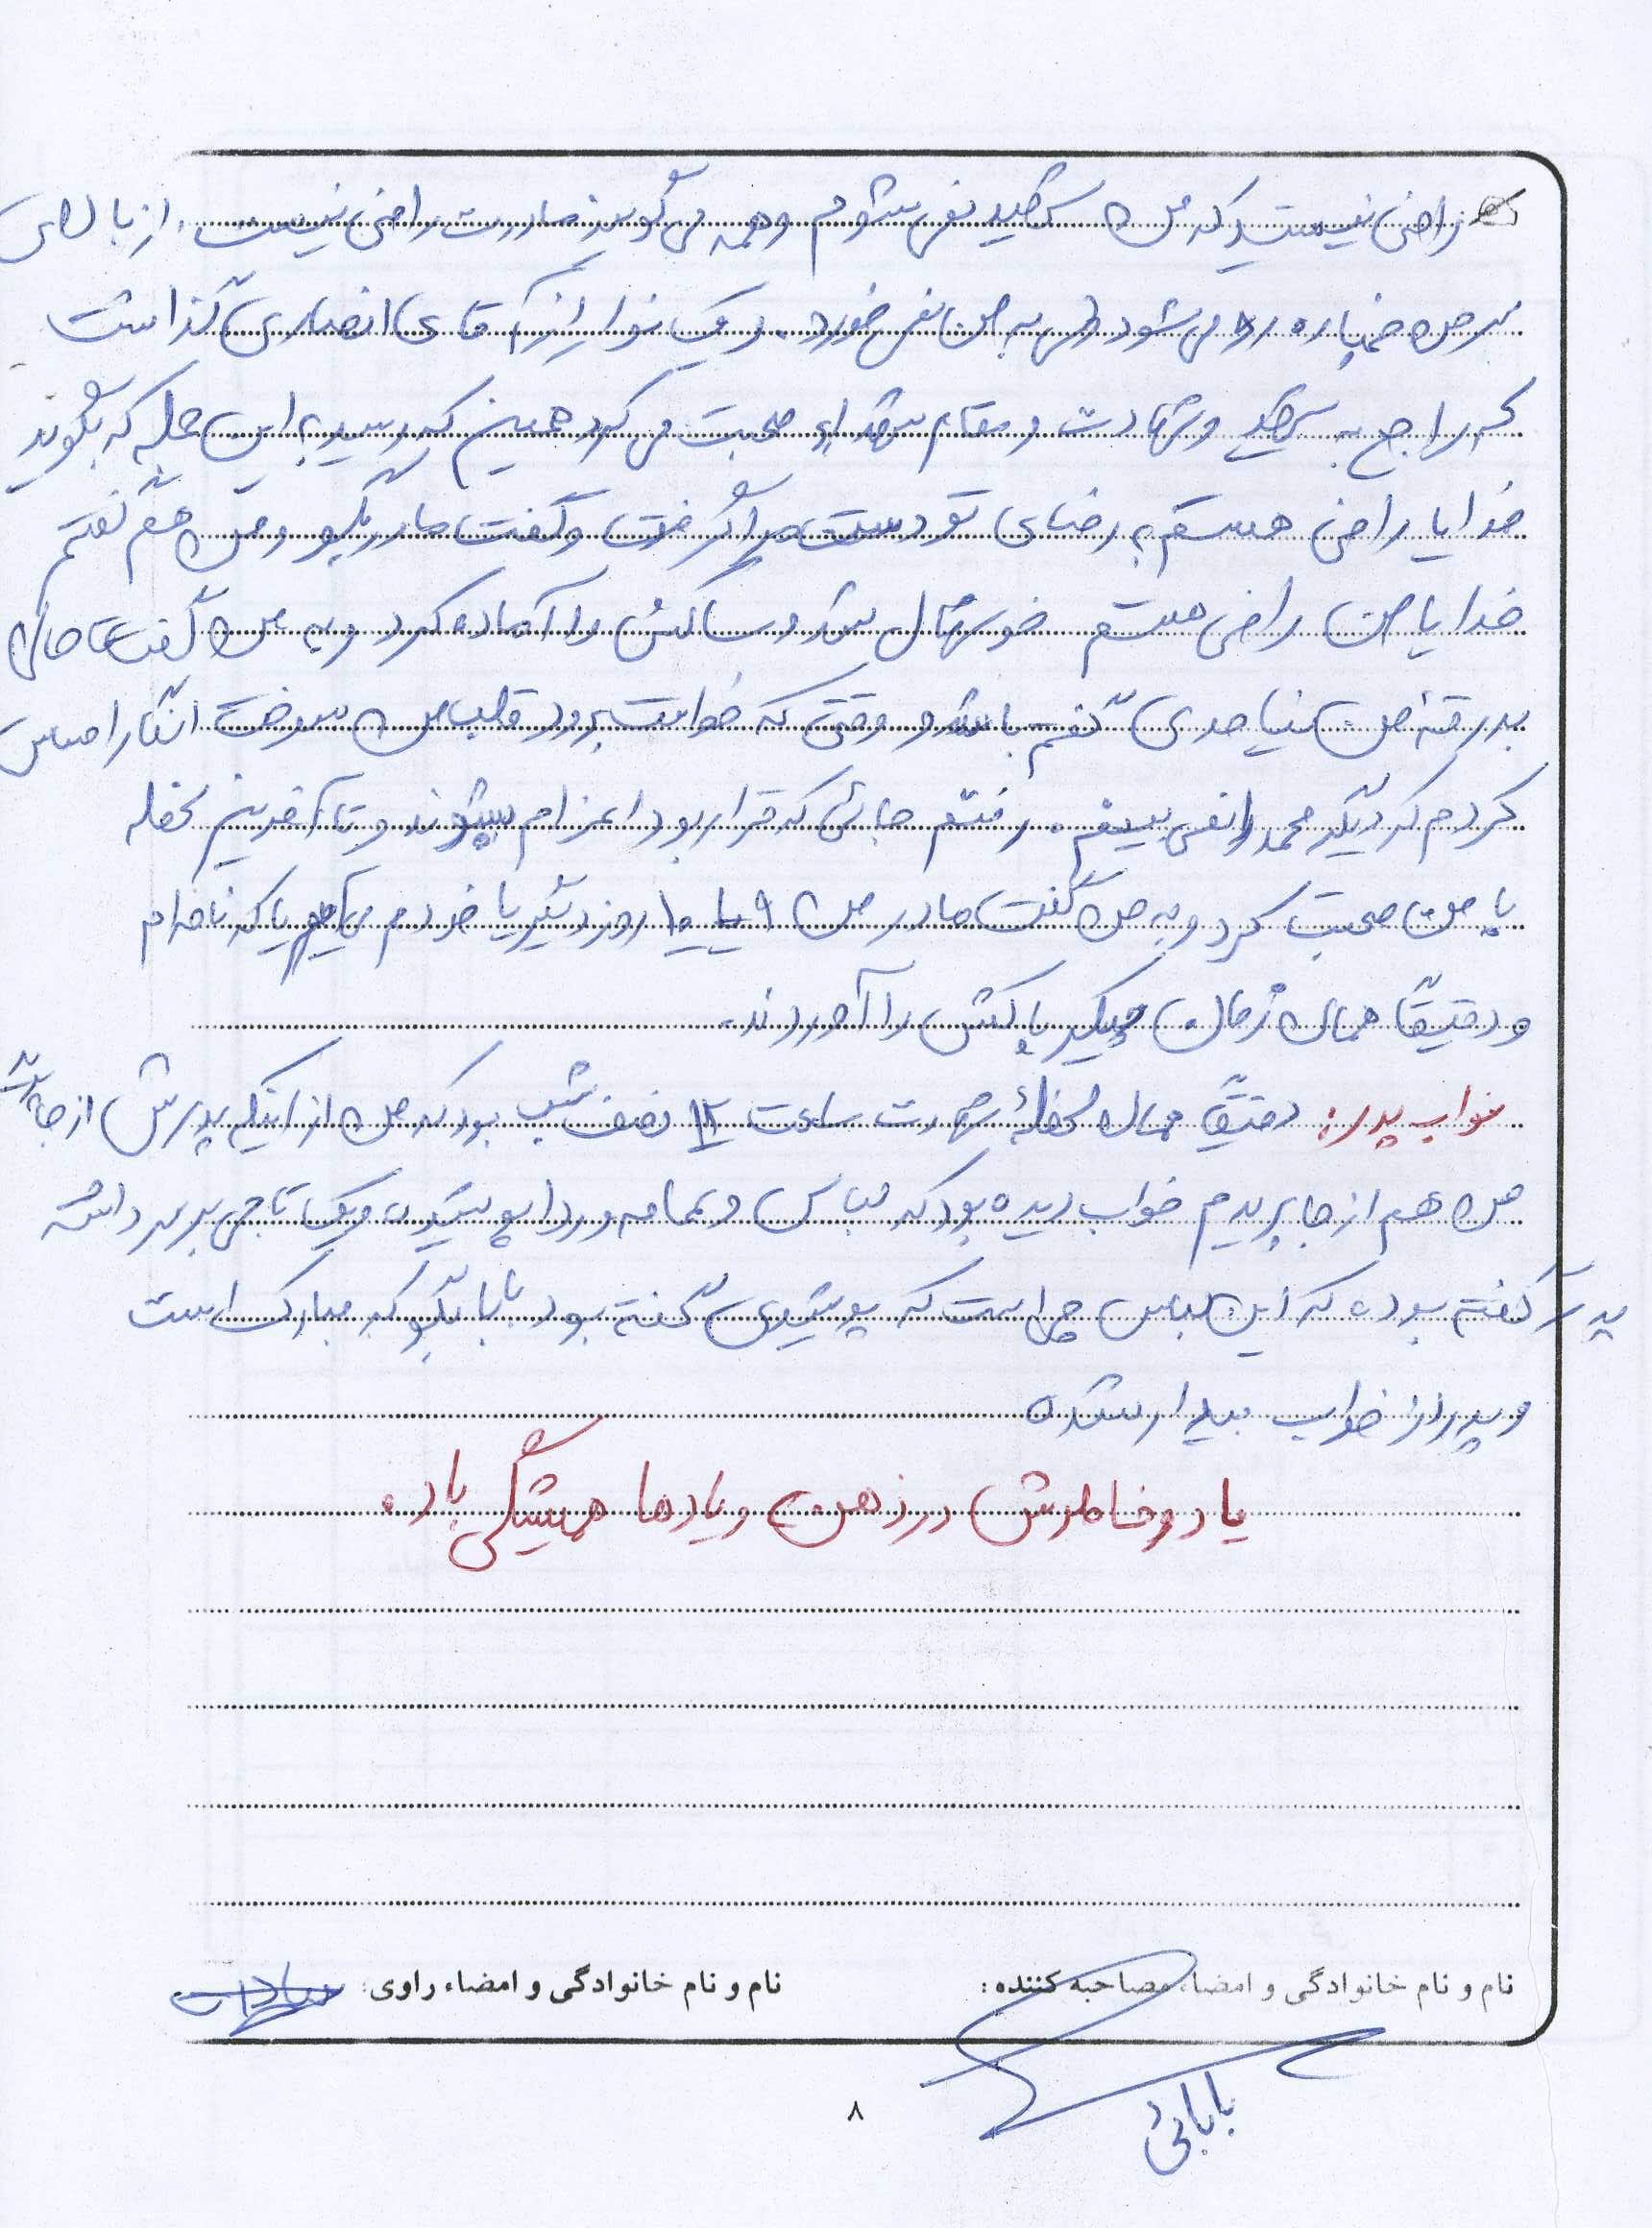 راضی نیستید که من شهید نمی شوم و همه می گویند مادرت راضی نیست. از بالای
سر من خمپاره رد می شود ولی به من نمی خورد. و یک نوار از آقای انصاری گذاشت
که راجع به شهید و شهادت و مقام شهداء صحبت می کرد همین که رسید به این جمله که بگوید
خدایا راضی هستم به رضای تو دست مرا گرفت و گفت مادر بگو و من هم گفتم
خدایا من راضی هستم خوشحال شد و ساکش را آماده کرد و به من گفت مامان
بدرقه من نیامدی گفتم باشد و وقتی که خواست برود قلب من سوخت انگار احساس
کردم که دیگر محمد را نمی بینم. رفتم جائی که قرار بود اعزام بشوند و تا آخرین لحظه
با من صحبت کرد و به من گفت مادر من ۹ یا ۱۰ روز دیگر یا خودم می آیم یا که نامه ام
و دقیقاً همان زمان پیکر پاکش را آوردند.
خواب پدر: دقیقاً همان لحظۀ شهادت ساعت ۱۲ نصف شب بود که من از اینکه پدرش از جا
من هم از جا پریدم خواب دیده بود که لباس و عمامه و ردا پوشیده و یک تاجی بر سر داشته
پدر گفته بود که این لباس چی است که پوشیدی گفته بود بابا بگو که مبارک است
و پدر از خواب بیدار شده
یاد و خاطرش در ذهن و یادها همیشگی باد.
نام و نام خانوادگی و امضاء مصاحبه کننده:
نام و نام خانوادگی و امضاء راوی:
بابائی
۸